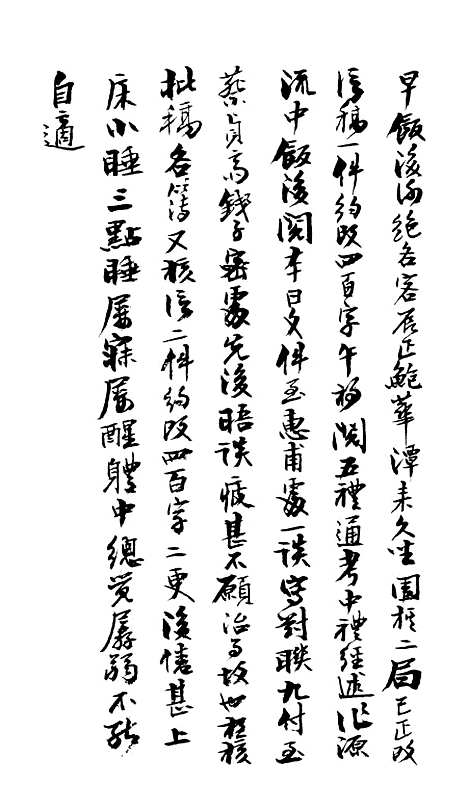 早飯後謝絕各客辰正鮑華潭来久坐圍棋二局巳正改
信稿一件約改四百字午初閱五禮通考中禮經述作源
流中飯後閱本日文件至惠甫處一談寫對聯九付至
蔡貞齋錢子密處先後晤談疲甚不願治事故也夜核
批稿各簿又核信二件約改四百字二更後倦甚上
床小睡三點睡屢寐屢醒體中總覺孱弱不能
自適